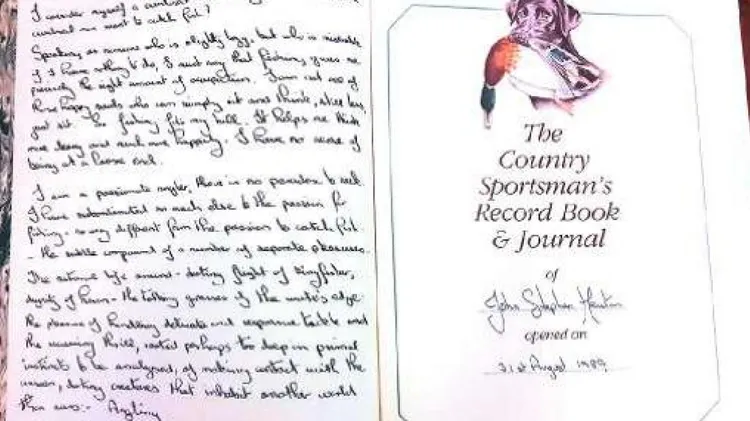 I consider myself a
want to catch fish?
Speaking as someone who is slightly lazy, but who is miserable
if I have nothing to do, I must say that fishing gives me
precisely the right amount of occupation. I am not one of
those happy souls who can simply sit and think, still less,
just sit. So fishing fits my bill. It helps me think
more clearly and much more happily. I have no sense of
being at a loose end.
I am a passionate angler, there is no paradox to
I have substituted so much else to the passion for
fishing - so very different from the passion to catch fish.
- the subtle compound of a number of separate pleasures.
The nature life around - darting flight of kingfisher,
dignity of heron - the tall grasses of the water's edge
the pleasure of handling delicate and responsive tackle and
the unceasing thrill, rooted perhaps too deep in primal
instincts to be analysed, of making contact with the
unseen, darting creatures that inhabit another world
than ours:- Angling
The
Country
Sportsman's
Record Book
& Journal
of
John Stephen
opened on
31st August 1989